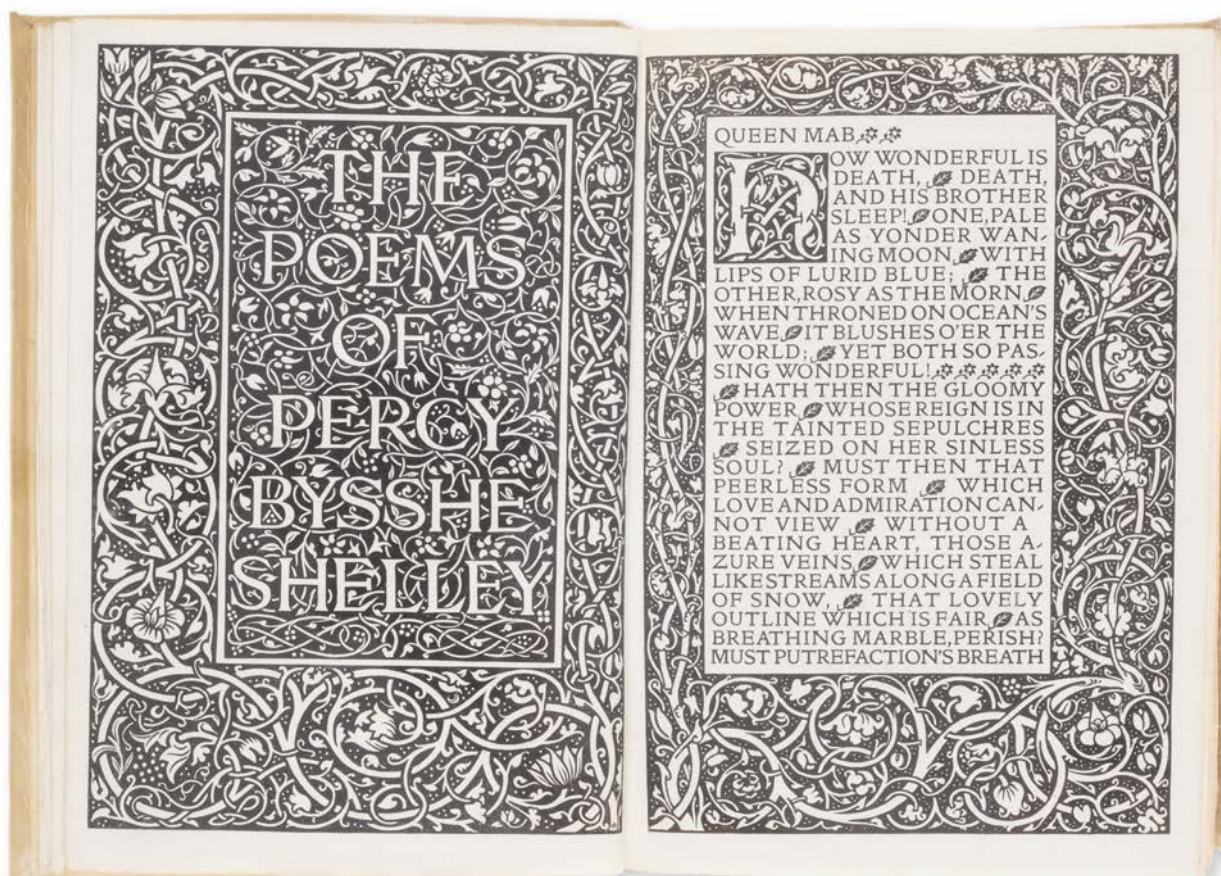 THE
POEMS
OF
PERCY
BYSSHE
SHELLEY
QUEEN MAB
HOW WONDERFUL IS
DEATH, DEATH,
AND HIS BROTHER
SLEEP! ONE, PALE
AS YONDER WAN-
ING MOON, WITH
LIPS OF LURID BLUE; THE
OTHER, ROSY AS THE MORN
WHEN THRONED ON OCEAN'S
WAVE IT BLUSHES O'ER THE
WORLD; YET BOTH SO PAS-
SING WONDERFUL!
HATH THEN THE GLOOMY
POWER WHOSE REIGN IS IN
THE TAINTED SEPULCHRES
SEIZED ON HER SINLESS
SOUL? MUST THEN THAT
PEERLESS FORM WHICH
LOVE AND ADMIRATION CAN-
NOT VIEW WITHOUT A
BEATING HEART, THOSE A-
ZURE VEINS WHICH STEAL
LIKE STREAMS ALONG A FIELD
OF SNOW, THAT LOVELY
OUTLINE WHICH IS FAIR AS
BREATHING MARBLE, PERISH?
MUST PUTREFACTION'S BREATH